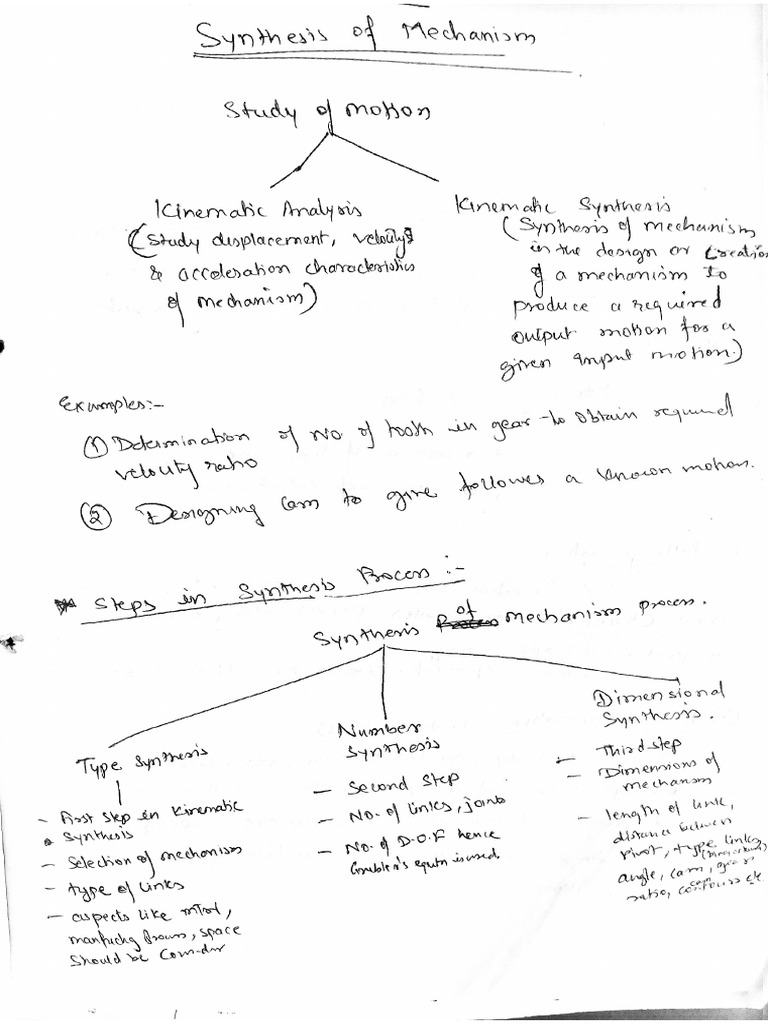 Synthesis of Mechanism
Study of motion
Kinematic Analysis
(Study displacement, velocity
& acceleration characteristics
of mechanism)
Kinematic Synthesis
(Synthesis of mechanism
in the design or creation
of a mechanism to
produce a required
output motion for a
given input motion.)
Examples:-
(1) Determination of No of tooth in gear to obtain required
velocity ratio
(2) Designing cam to give follower a known motion.
* Steps in Synthesis Process :-
Synthesis of mechanism process.
Type Synthesis
- First step in Kinematic
Synthesis
- Selection of mechanism
- type of links
- aspects like
space
should be
Number
Synthesis
- Second step
- No. of links, joints
- No. of D.O.F hence
Grubler's equtn is used
Dimensional
Synthesis.
- Third step
- Dimensions of
mechanism
- length of link,
distance between
pivot, type links
angle, cam, gear
ratio, cam contours etc.